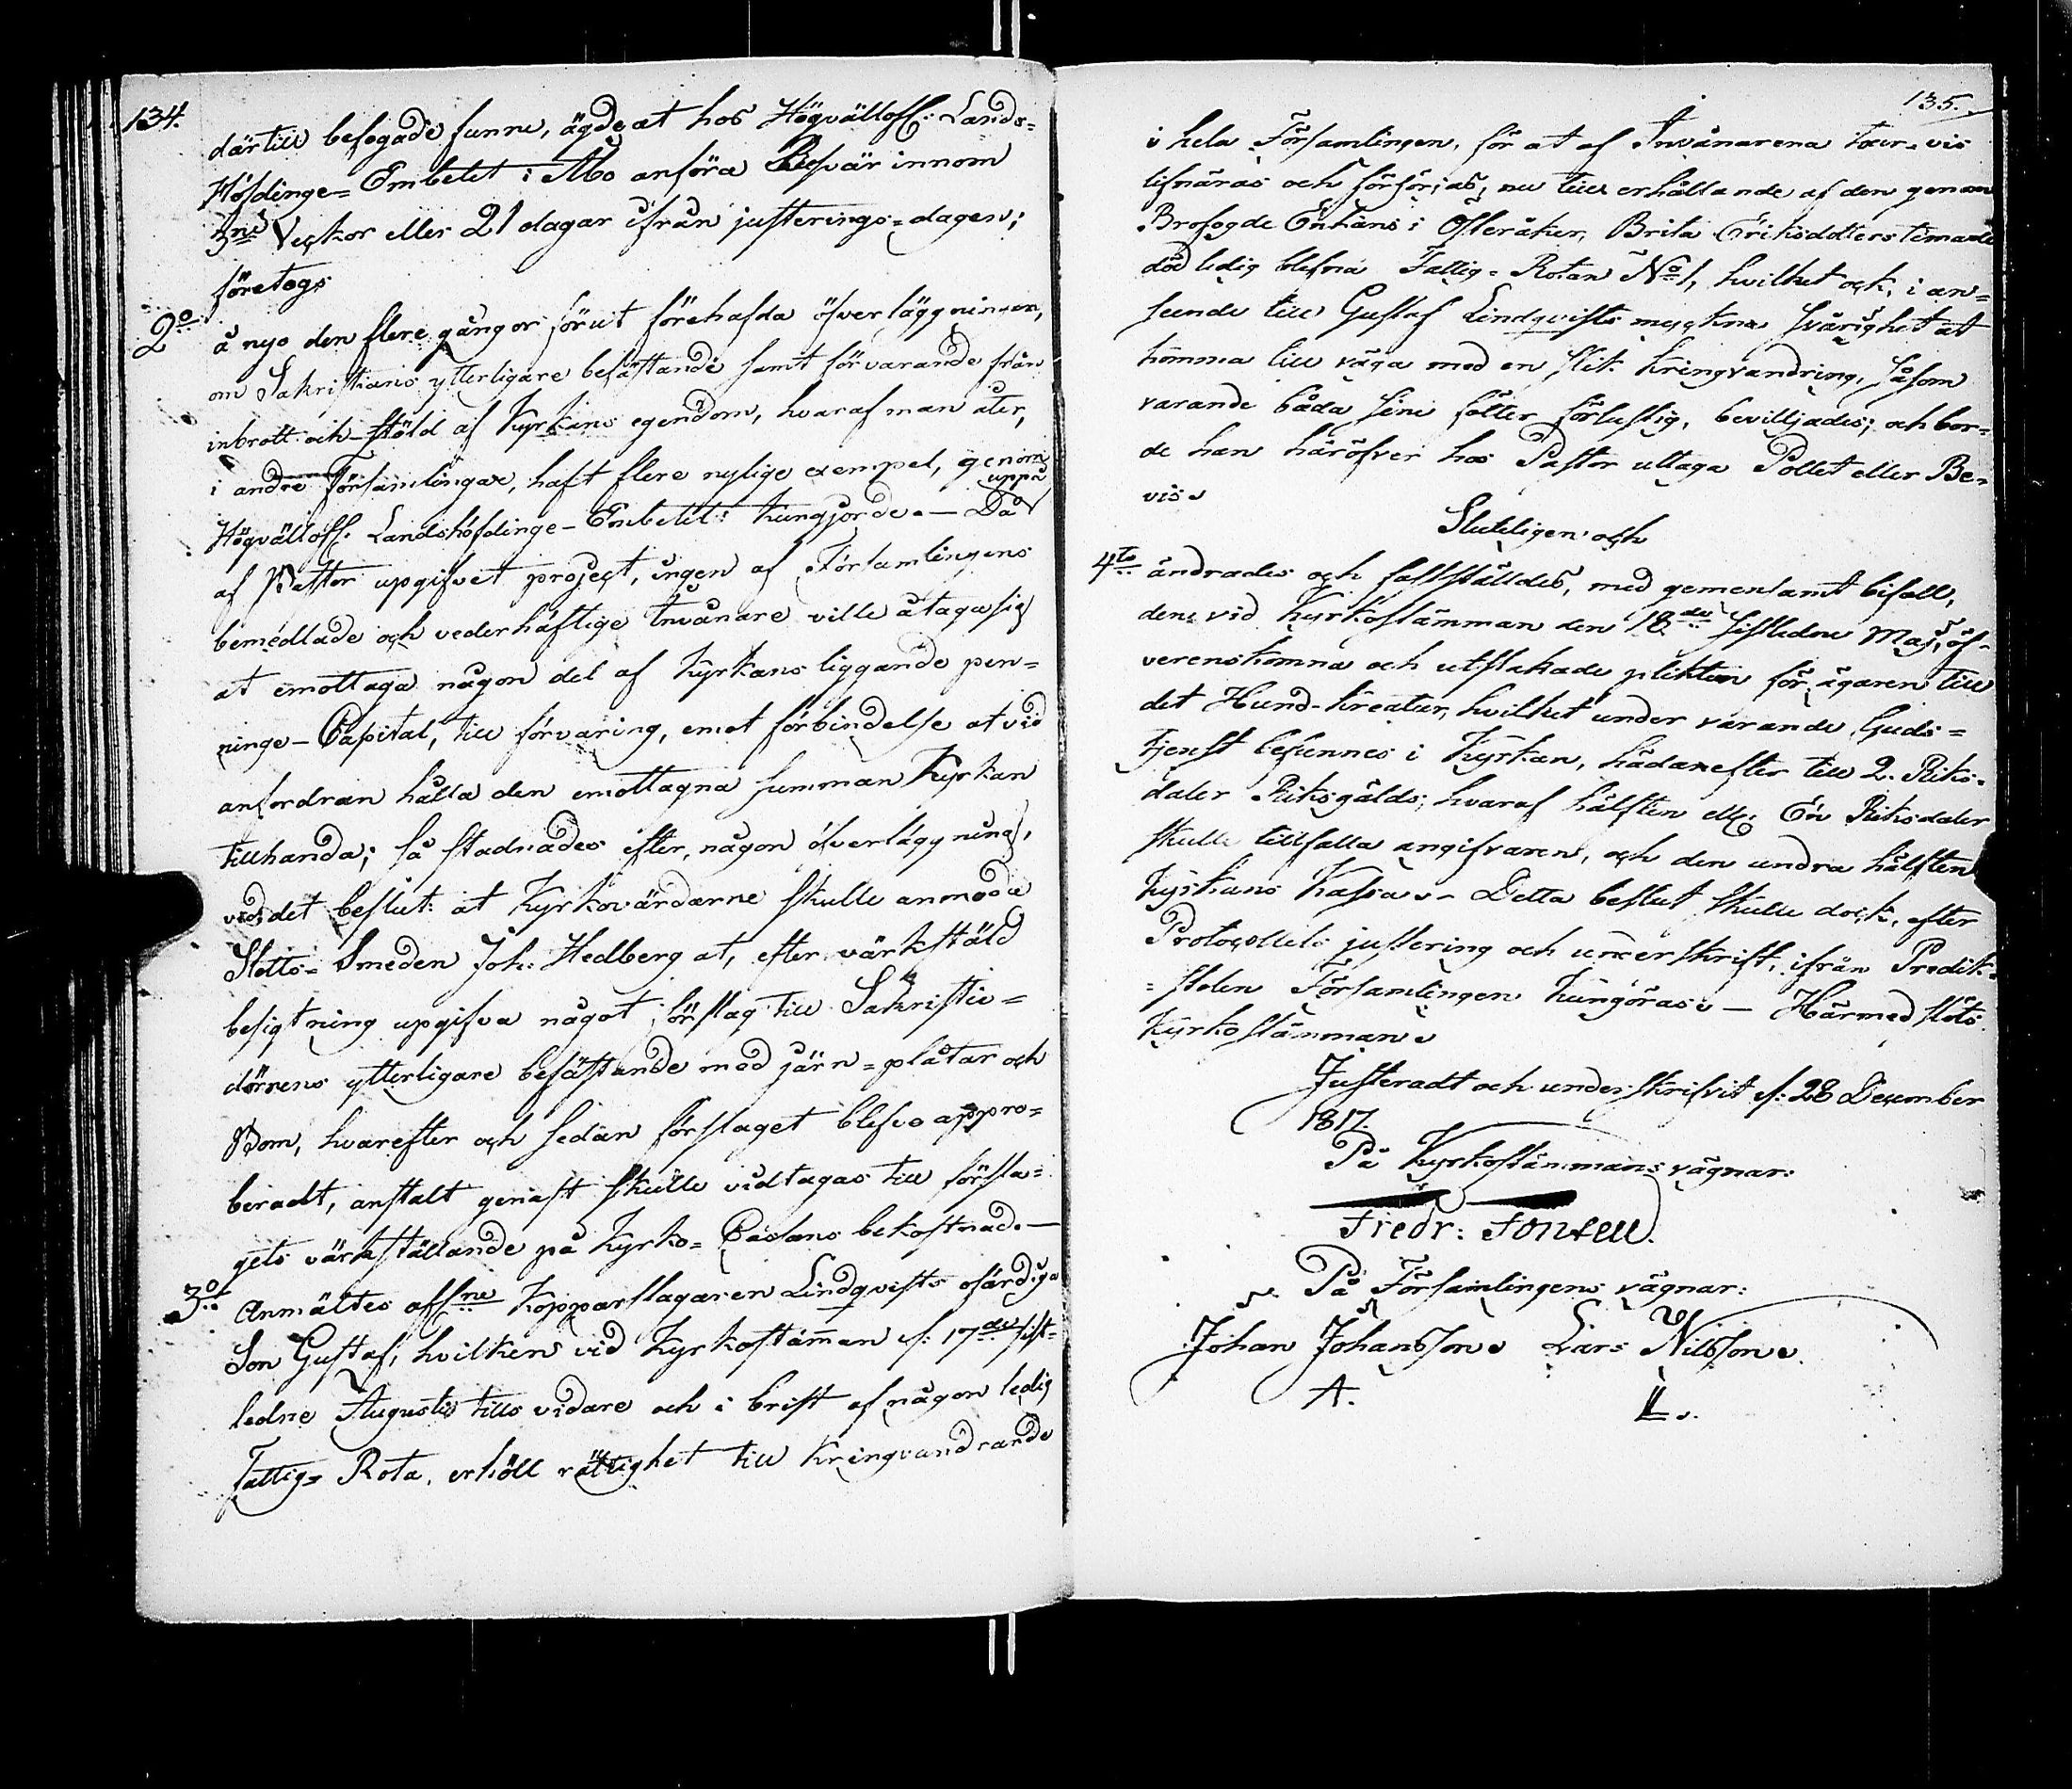 134.
därtill befogade funne, ägde at hos Högvällofl: Lands=
Höfdinge=Embetet i Åbo anföra Besvär innom
3ne Veckor eller 21 dagar ifrån justerings=dagen;
företogs
2o å nyo den flere gångor förut förehafda öfverläggningen,
om Sakristians ytterligare befästande samt förvarande från
inbrott och stöld af Kyrkans egendom, hvaraf man åter,
i andre Församlingar, haft flere nylige exempel, genom
Högvällofl: Landshöfdinge-Embetet kungjorde. — Då uppå
af Pastor upgifvet project, ingen af Församlingens
bemedlade och vederhäftige Invånare ville åtaga sig
at emottaga någon del af Kyrkans liggande pen=
ninge-Capital, till förvaring, emot förbindelse at vid
anfordran hålla den emottagna summan Kyrkan
tillhanda; så stadnades efter någon öfverläggning,
vid det beslut: at Kyrkovärdarne skulle anmoda
Slotts=Smeden Joh: Hedberg at, efter värkstäld
besigtning upgifva något förslag till Sakristie=
dörrens ytterligare befästande med järn=plåtar och
Bom, hvarefter och sedan förslaget blefve appro=
beradt, anstalt genast skulle vidtagas till försla=
gets värkställande på Kyrko=Cassans bekostnad. —
3o Anmältes aflne Kopparslagaren Lindqvists ofärdiga
Son Gustaf, hvilken vid Kyrkostämman d: 17de sist=
ledne Augusti tills vidare och i brist af någon ledig
Fattig=Rota, erhöll rättighet till kringvandrande
135.
i hela Församlingen, för at af Invånarena turvis
lifnäras och försörjas, nu till erhållande af den genom
Brofogde Enkans i Österåker, Brita Eriksdotters timade
död ledig blefna Fattig=Rotan No 1, hvilket ock, i an=
seende till Gustaf Lindqvists myckna svårighet at
komma till väga med en slik kringvandring, såsom
varande båda sine fötter förlustig, beviljades; och bor=
de han häröfver hos Pastor uttaga Pollet eller Be=
vis.
Sluteligen och
4to ändrades och fastställdes, med gemensamt bifall,
den, vid Kyrkostämman den 18de sistledne Maj, öf=
verenskomna och utstakade plikten för ägaren till
det Hund-kreatur, hvilket under varande Guds=
tjenst befunnes i Kyrkan, hädanefter till 2. Riks=
daler Riksgälds; hvaraf hälften ell: En Riksdaler
skulle tillfalla angifvaren, och den andra hälften
Kyrkans Kassa. - Detta beslut skulle dock, efter
Protocollets justering och underskrift, ifrån Predik=
=stolen Församlingen kungöras. — Härmed slöts
Kyrkostämman.
Justeradt och underskrifvit d: 28 December
1817.
På Kyrkostämmans vägnar:
Fredr: Fontell.
På Församlingens vägnar:
Johan Johansson. Lars Nilsson.
A. L.